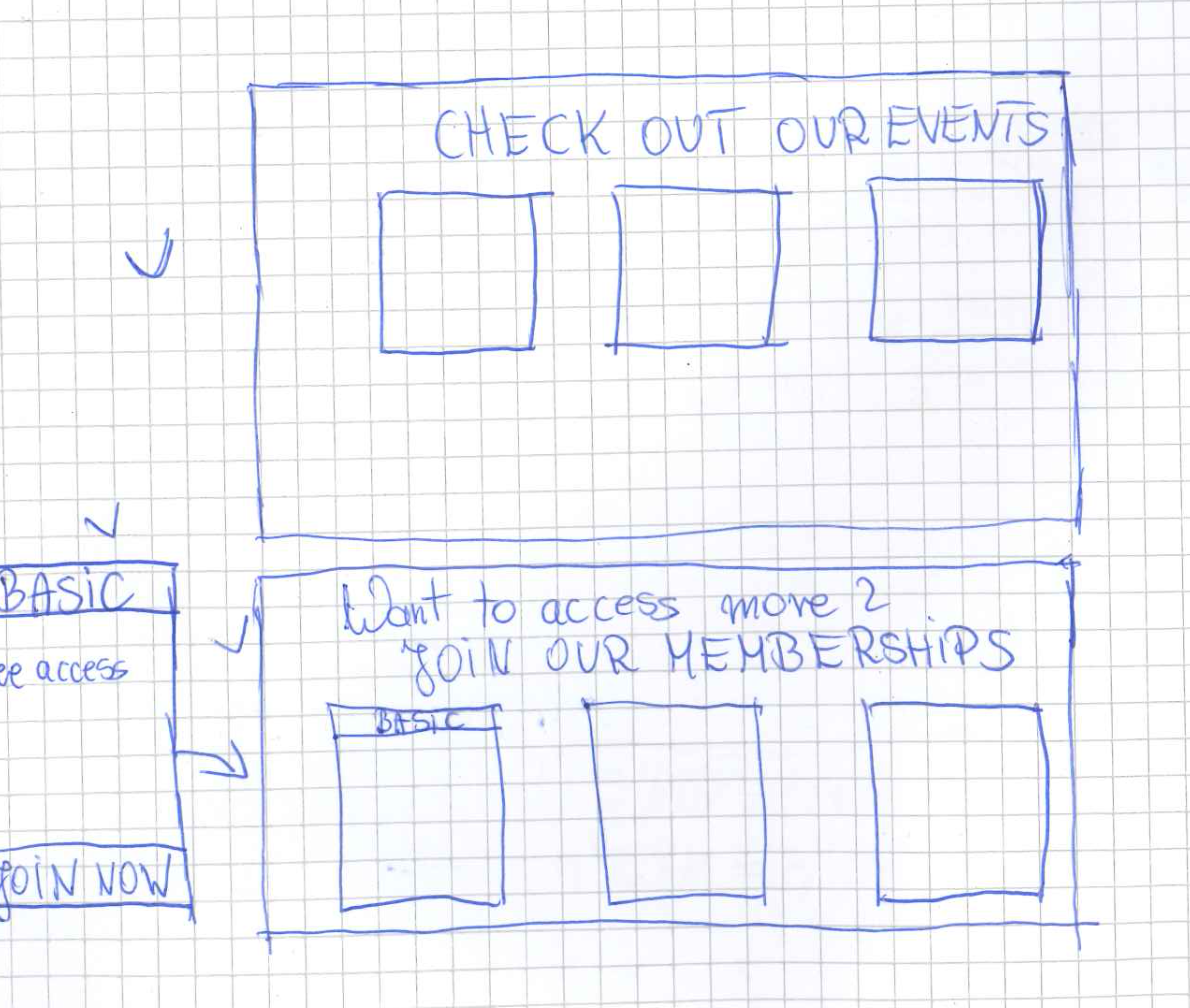 CHECK OUT OUR EVENTS
BASIC
ee access
JOIN NOW
Want to access more ?
JOIN OUR MEMBERSHIPS
BASIC